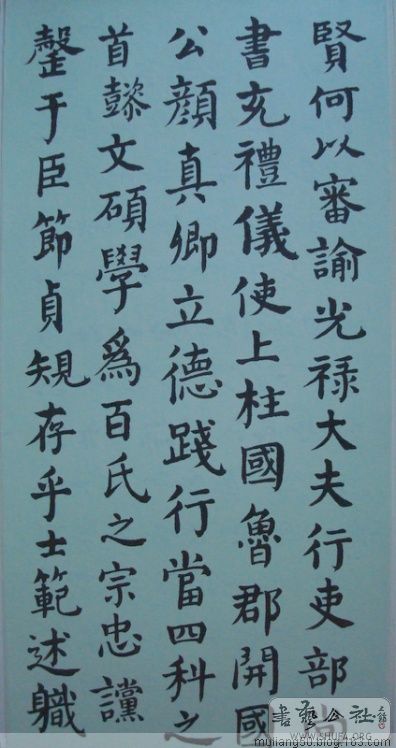 賢何以審諭光禄大夫行吏部尚
書充禮儀使上柱國魯郡開國
公顔真卿立德踐行當四科之
首懿文碩學爲百氏之宗忠讜
罄于臣節貞規存乎士範述軄
書藝公社
WWW.SHUFA.ORG